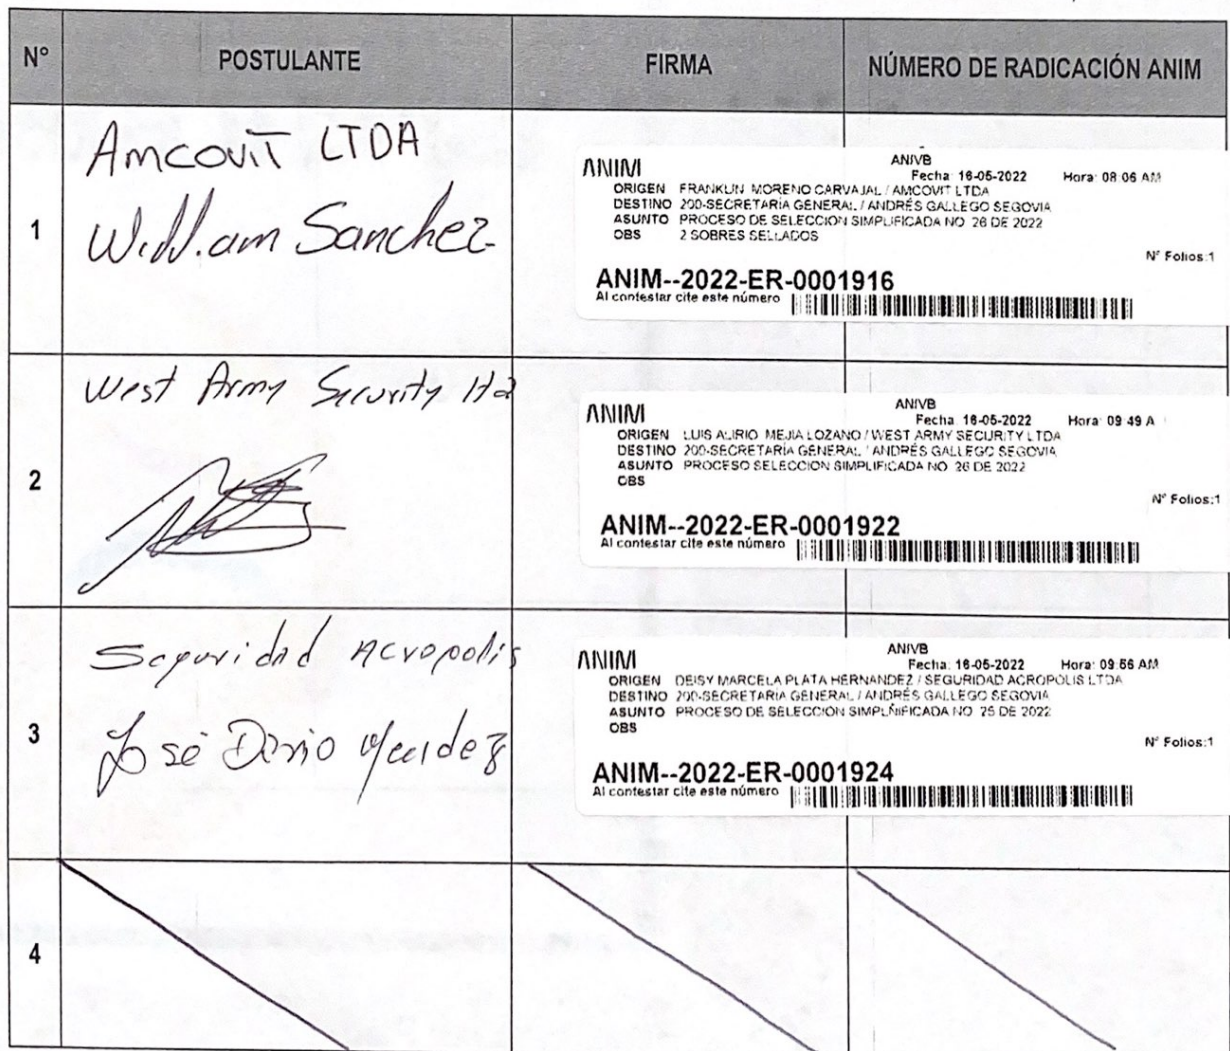 N° POSTULANTE FIRMA NÚMERO DE RADICACIÓN ANIM
1
Amcovit LTDA
William Sanchez
ANIM
ANIVB
Fecha: 16-05-2022 Hora: 08:06 AM
ORIGEN FRANKLIN MORENO CARVAJAL / AMCOVIT LTDA
DESTINO 200-SECRETARÍA GENERAL / ANDRÉS GALLEGO SEGOVIA
ASUNTO PROCESO DE SELECCION SIMPLIFICADA NO 26 DE 2022
OBS 2 SOBRES SELLADOS
N° Folios:1
ANIM--2022-ER-0001916
Al contestar cite este número
2
West Army Security ltda
ANIM
ANIVB
Fecha: 16-05-2022 Hora: 09:49 A
ORIGEN LUIS ALIRIO MEJIA LOZANO / WEST ARMY SECURITY LTDA
DESTINO 200-SECRETARÍA GENERAL / ANDRÉS GALLEGO SEGOVIA
ASUNTO PROCESO SELECCION SIMPLIFICADA NO 26 DE 2022
OBS
N° Folios:1
ANIM--2022-ER-0001922
Al contestar cite este número
3
Seguridad Acropolis
José Dario Mendez
ANIM
ANIVB
Fecha: 16-05-2022 Hora: 09:56 AM
ORIGEN DEISY MARCELA PLATA HERNANDEZ / SEGURIDAD ACROPOLIS LTDA
DESTINO 200-SECRETARÍA GENERAL / ANDRÉS GALLEGO SEGOVIA
ASUNTO PROCESO DE SELECCION SIMPLÑIFICADA NO 25 DE 2022
OBS
N° Folios:1
ANIM--2022-ER-0001924
Al contestar cite este número
4